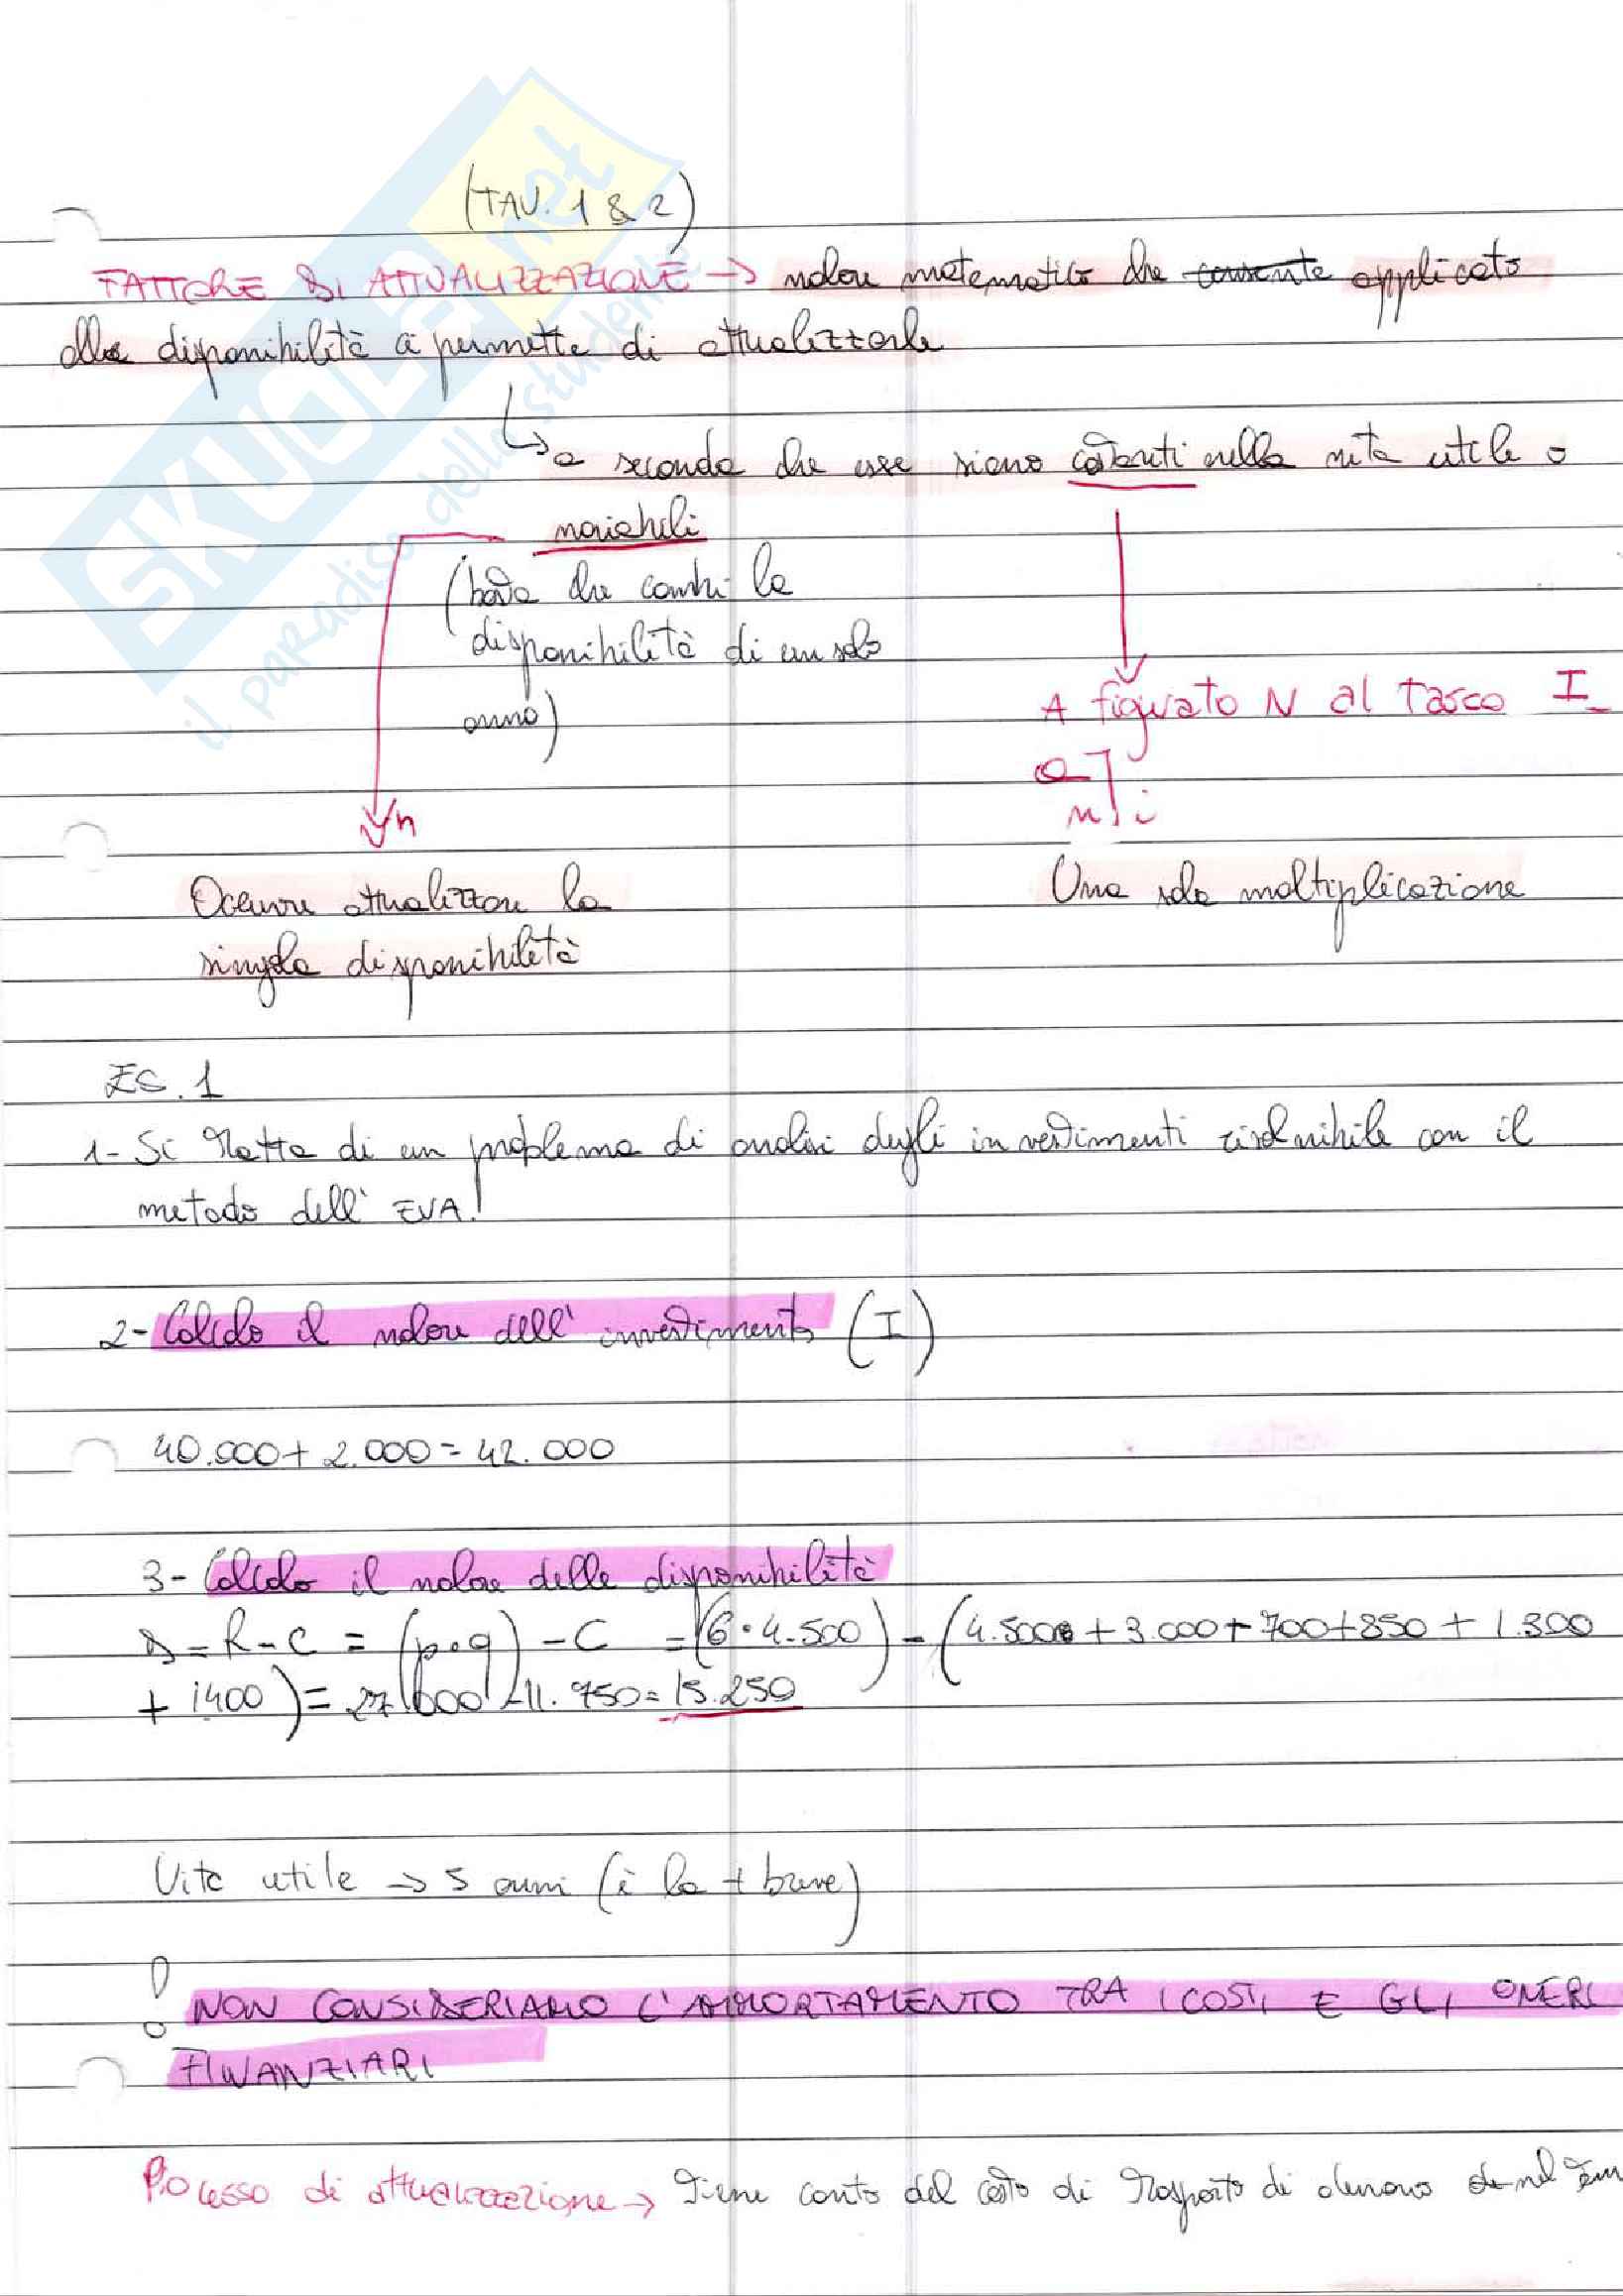 (TAV. 1 & 2)
FATTORE DI ATTUALIZZAZIONE → valore matematico che consente applicato
alle disponibilità ci permette di attualizzarle
↳ a seconda che esse siano costanti nella vita utile o
variabili
(basta che cambi la
disponibilità di un solo
anno)
A figurato N al tasso I
a n⌉ i
Vn
Occorre attualizzare la
singola disponibilità
Una sola moltiplicazione
ES. 1
1- Si tratta di un problema di analisi degli investimenti risolvibile con il
metodo dell' EVA!
2- Calcolo il valore dell' investimento (I)
40.000 + 2.000 = 42.000
3- Calcolo il valore delle disponibilità
D = R - C = (p•q) - C = (6 • 4.500) - (4.500 + 3.000 + 700 + 850 + 1.300
+ 1400) = 27.000 - 11.750 = 15.250
Vita utile → 5 anni (è la + breve)
! NON CONSIDERIAMO L'AMMORTAMENTO TRA I COSTI E GLI ONERI
FINANZIARI
Processo di attualizzazione → Tiene conto del costo di trasporto di denaro nel tem
SKUOLA.net
il paradiso dello studente